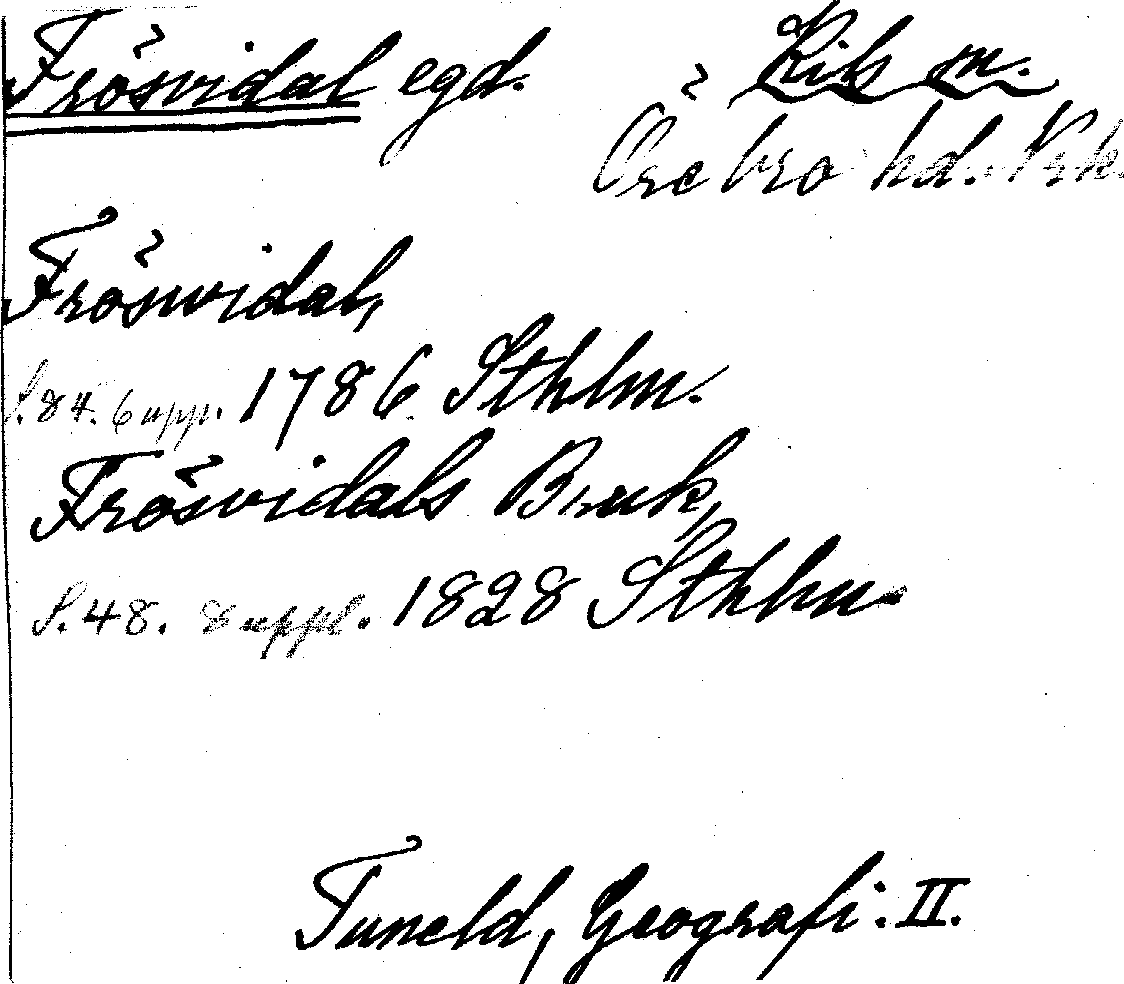 Frösvidal egd. Kils sn.
Örebro hd. Nrk.
Frösvidal,
S. 84. 6 uppl. 1786 Sthlm.
Frösvidals Bruk,
S. 48. 8 uppl. 1828 Sthlm.
Tuneld, Geografi. II.